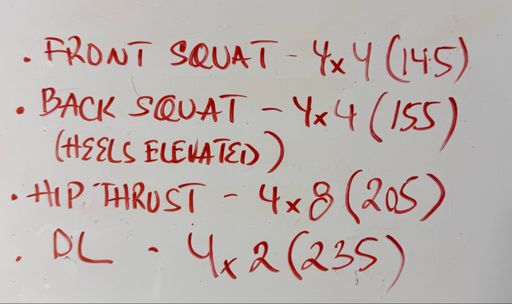 • FRONT SQUAT - 4x4 (145)
• BACK SQUAT - 4x4 (155)
(HEELS ELEVATED)
• HIP THRUST - 4x8 (205)
• DL - 4x2 (235)